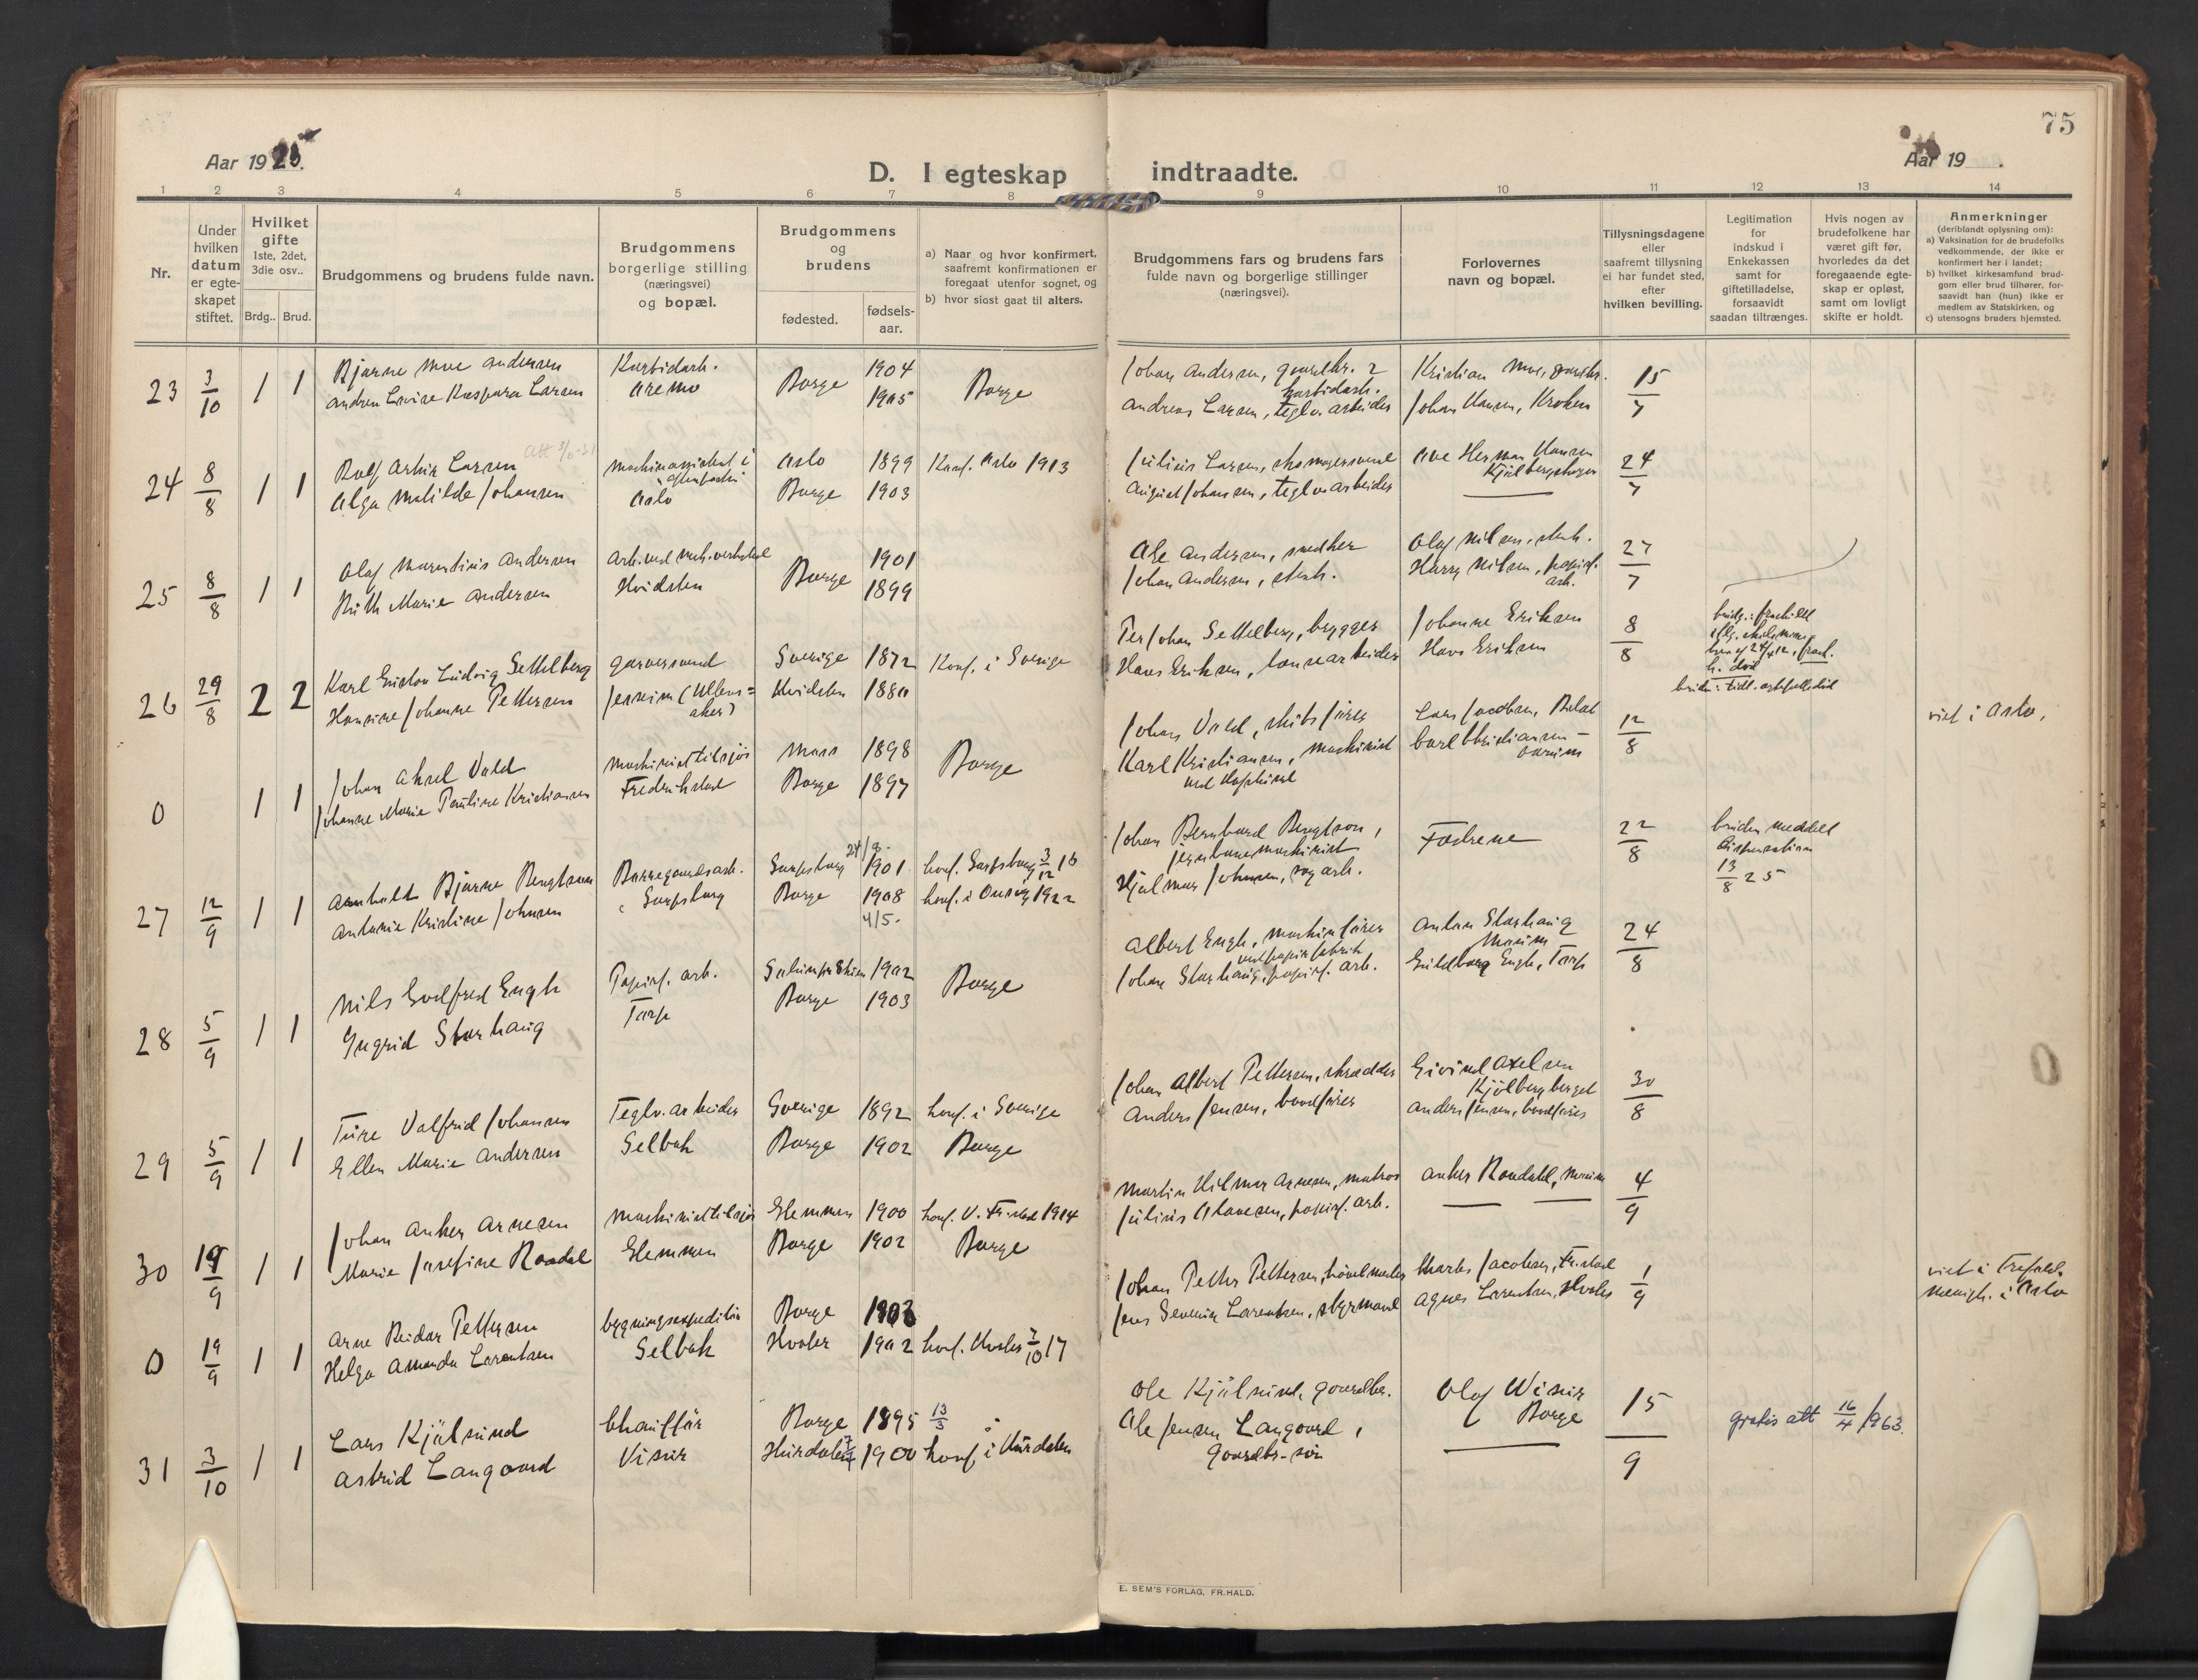 75
Aar 1925.
D. I egteskap indtraadte.
Aar 19 .
1 2 3 4 5 6 7 8 9 10 11 12 13 14
Nr.
Under hvilken datum er egte- skapet stiftet.
Hvilket gifte 1ste, 2det, 3die osv..
Brdg.. Brud.
Brudgommens og brudens fulde navn.
Brudgommens borgerlige stilling (næringsvei) og bopæl.
Brudgommens og brudens
fødested. fødsels- aar.
a) Naar og hvor konfirmert, saafremt konfirmationen er foregaat utenfor sognet, og
b) hvor sidst gaat til alters.
Brudgommens fars og brudens fars fulde navn og borgerlige stillinger (næringsvei).
Forlovernes navn og bopæl.
Tillysningsdagene eller saafremt tillysning ei har fundet sted, efter hvilken bevilling.
Legitimation for indskud i Enkekassen samt for giftetilladelse, forsaavidt saadan tiltrænges.
Hvis nogen av brudefolkene har været gift før, hvorledes da det foregaaende egte- skap er opløst, samt om lovligt skifte er holdt.
Anmerkninger (deriblandt oplysning om):
a) Vaksination for de brudefolks vedkommende, der ikke er konfirmert her i landet;
b) hvilket kirkesamfund brud- gom eller brud tilhører, for- saavidt han (hun) ikke er medlem av Statskirken, og
c) utensogns bruders hjemsted.
23 3/10 1 1 Bjarne Moe Andersen Karbidarb. Borge 1904 Borge Johan Andersen, gaardbr. & karbidarb. Kristian Moe, gaardbr. 15/7
Andrea Lovise Kaspara Larsen Aremo 1905 Andreas Larsen, teglv.arbeider Johan Hansen, Kroken
24 8/8 1 1 Rolf Artur Larsen Oslo 1899 Konf. Oslo 1913 Julius Larsen, skomagersvend Ole Herman Hansen 24/7
Olga Matilde Johansen Oslo Borge 1903 August Johansen, teglv.arbeider Kjölbergskogen
25 8/8 1 1 Olaf Marentius Andersen Arb. ved mek. verksted Borge 1901 Ole Andersen, snedker Olaf Nilsen, stenh. 27/7
Ruth Marie Andersen Hvidsten 1899 Johan Andersen, stenh. Harry Nilsen, papirf. arb.
26 29/8 2 2 Karl Gustav Ludvig Settelberg garversvend Sverige 1872 Konf. i Sverige Per Johan Settelberg, brygger Johanne Eriksen 8/8
Hansine Johanne Pettersen Jessheim (Ullens= aker) Hvidsten 1880 Hans Eriksen, lönnarbeider Hans Eriksen
viet i Oslo.
0 1 1 Johan Aksel Vold maskinist tilsjös Moss 1898 Borge Johan Vold, skibsförer Lars Jacobsen, 12/8
Johanne Marie Pauline Kristiansen Fredrikstad Borge 1897 Karl Kristiansen, maskinist Carl Christiansen
27 12/9 1 1 Arnholdt Bjarne Bengtson Borregaardsarb. Sarpsborg 1901 konf. Sarpsborg 3/12 16 Johan Bernhard Bengtson, jernbanemaskinist Fædrene 22/8
Antonie Kristine Johnsen Sarpsborg Borge 1908 4/5. konf. i Onsöy 1922 Hjalmar Johnsen, sagarb.
bruden meddelt dispensation 13/8 25
28 5/9 1 1 Nils Godfred Engh Papirf. arb. 1902 Borge Albert Engh, maskinförer ved papirfabrik Anton Storhaug 24/8
Ingrid Storhaug Torp Borge 1903 Johan Storhaug, papirf. arb. Guldborg Engh, Torp
29 5/9 1 1 Ture Valfrid Johansen Teglv. arbeider Sverige 1892 konf. i Sverige Johan Albert Pettersen, skrædder Eivind Axelsen Kjölbergberget 30/8
Ellen Marie Andersen Selbak Borge 1902 Borge Anders Jensen, baadförer Anders Jensen, baadförer
30 19/9 1 1 Johan Anker Arnesen maskinist tilsjös Glemmen 1900 konf. V. Fr.stad 1914 Martin Hilmar Arnesen, matros Anker Raadahl, 4/9
Marie Josefine Raadal Glemmen Borge 1902 Borge Julius Olavesen, papirf. arb.
0 19/9 1 1 Arne Reidar Pettersen bygningsexpeditör Borge 1903 Johan Petter Pettersen, hövelmester Charles Jacobsen, Fr.stad 1/9
Helga Amanda Lorentsen Selbak Hvaler 1902 konf. Hvaler 7/10 17 Jens Severin Lorentsen, styrmand Agnes Lorentsen, Hvaler
viet i Trefold. menigh. i Oslo
31 3/10 1 1 Lars Kjölsund Chauffør Borge 1895 13/3 Ole Kjölsund, gaardbr. Olaf Visur Borge 15/9
Astrid Langaard Visur Hurdalen 1900 konf. i Hurdalen Ole Jensen Langaard, gaardbr.-sön
gratis att 16/4 1963.
E. SEM'S FORLAG, FR.HALD.